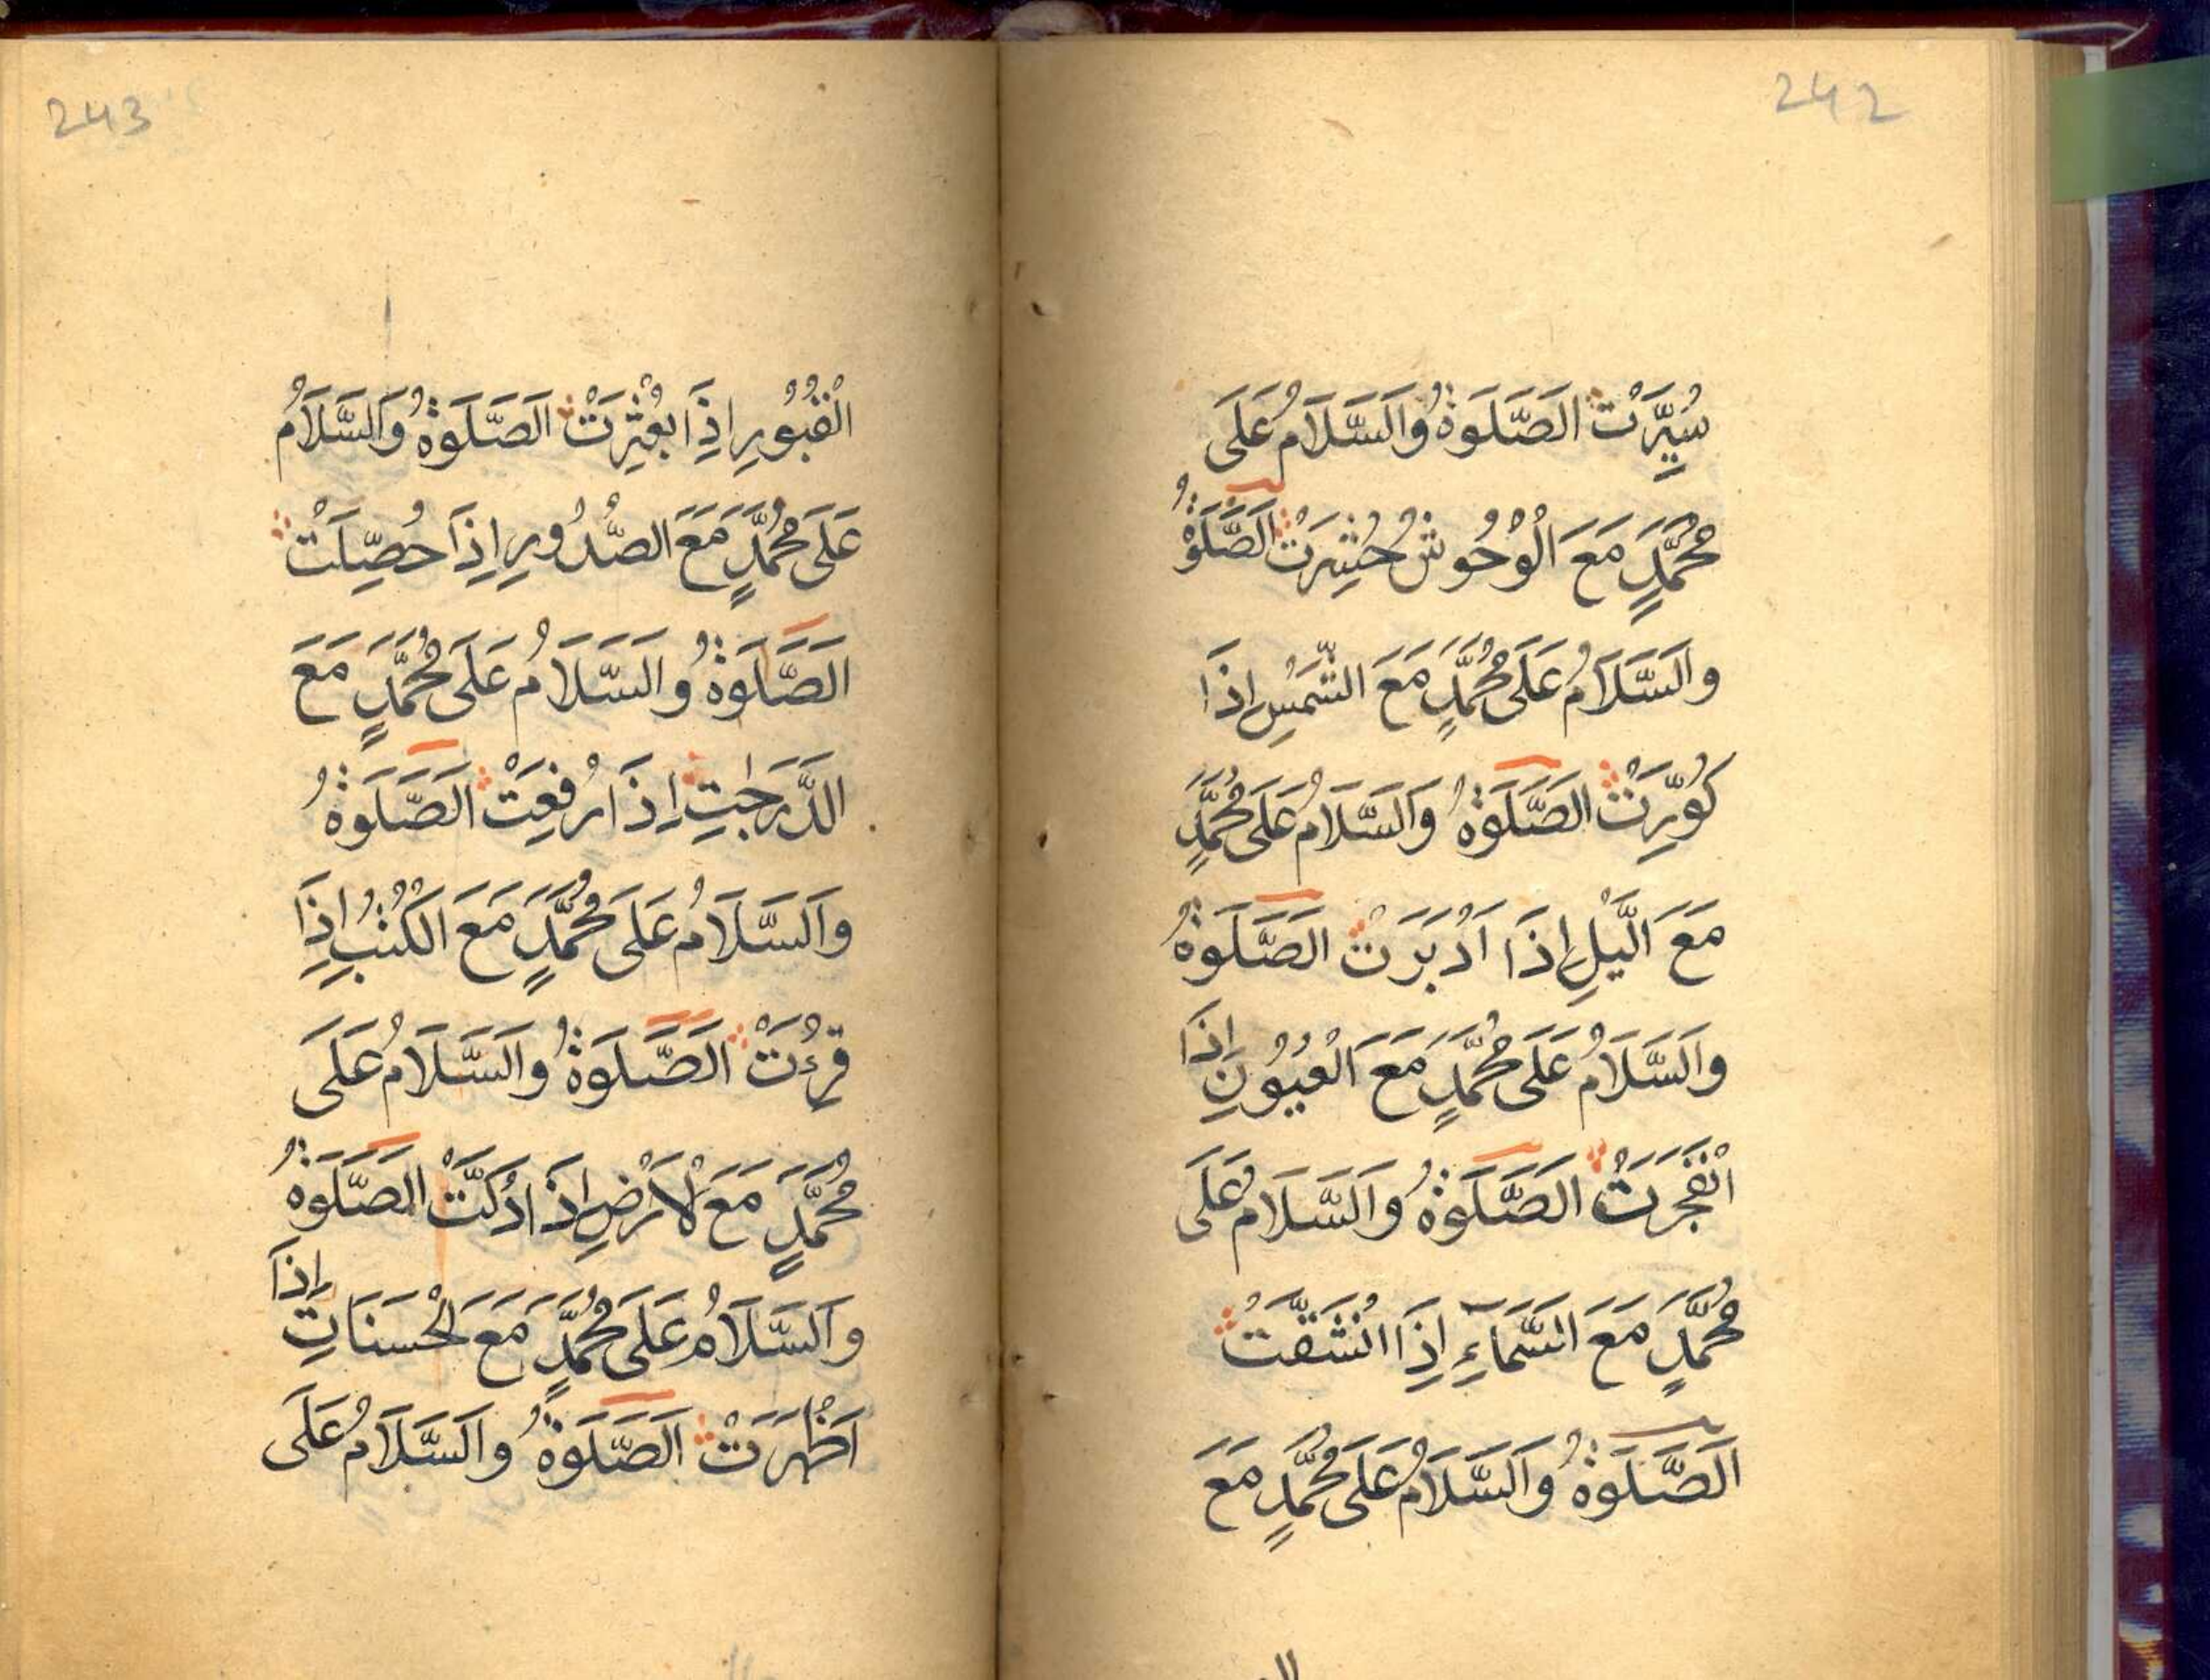 242
سُيِّرَتْ اَلصَّلَوةُ وَالسَّلَامُ عَلَى
مُحَمَّدٍ مَعَ الْوُحُوشُ حُشِرَتْ اَلصَّلَوةُ
وَالسَّلَامُ عَلَى مُحَمَّدٍ مَعَ الشَّمْسِ اِذَا
كُوِّرَتْ اَلصَّلَوةُ وَالسَّلَامُ عَلَى مُحَمَّدٍ
مَعَ الَّيْلِ اِذَا اَدْبَرَتْ اَلصَّلَوةُ
وَالسَّلَامُ عَلَى مُحَمَّدٍ مَعَ الْعُيُوْنِ اِذَا
انْفَجَرَتْ اَلصَّلَوةُ وَالسَّلَامُ عَلَى
مُحَمَّدٍ مَعَ السَّمَآءِ اِذَا انْشَقَّتْ
اَلصَّلَوةُ وَالسَّلَامُ عَلَى مُحَمَّدٍ مَعَ
243
الْقُبُوْرِ اِذَا بُعْثِرَتْ اَلصَّلَوةُ وَالسَّلَامُ
عَلَى مُحَمَّدٍ مَعَ الصُّدُورِ اِذَا حُصِّلَتْ
اَلصَّلَوةُ وَالسَّلَامُ عَلَى مُحَمَّدٍ مَعَ
الدَّرَجٰتِ اِذَا رُفِعَتْ اَلصَّلَوةُ
وَالسَّلَامُ عَلَى مُحَمَّدٍ مَعَ الْكُتُبِ اِذَا
قُرِءَتْ اَلصَّلَوةُ وَالسَّلَامُ عَلَى
مُحَمَّدٍ مَعَ الْاَرْضِ اِذَا دُكَّتْ اَلصَّلَوةُ
وَالسَّلَامُ عَلَى مُحَمَّدٍ مَعَ الْحَسَنَاتِ اِذَا
اَظْهَرَتْ اَلصَّلَوةُ وَالسَّلَامُ عَلَى